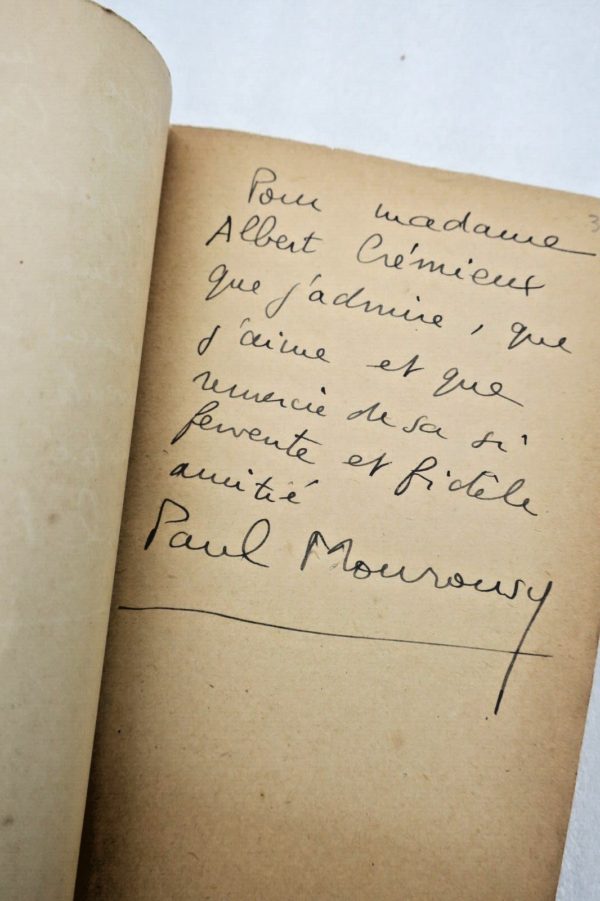 Pour madame
Albert Crémieux
que j'admire, que
j'aime et que
remercie de sa si
fervente et fidèle
amitié
Paul Mourousy
3